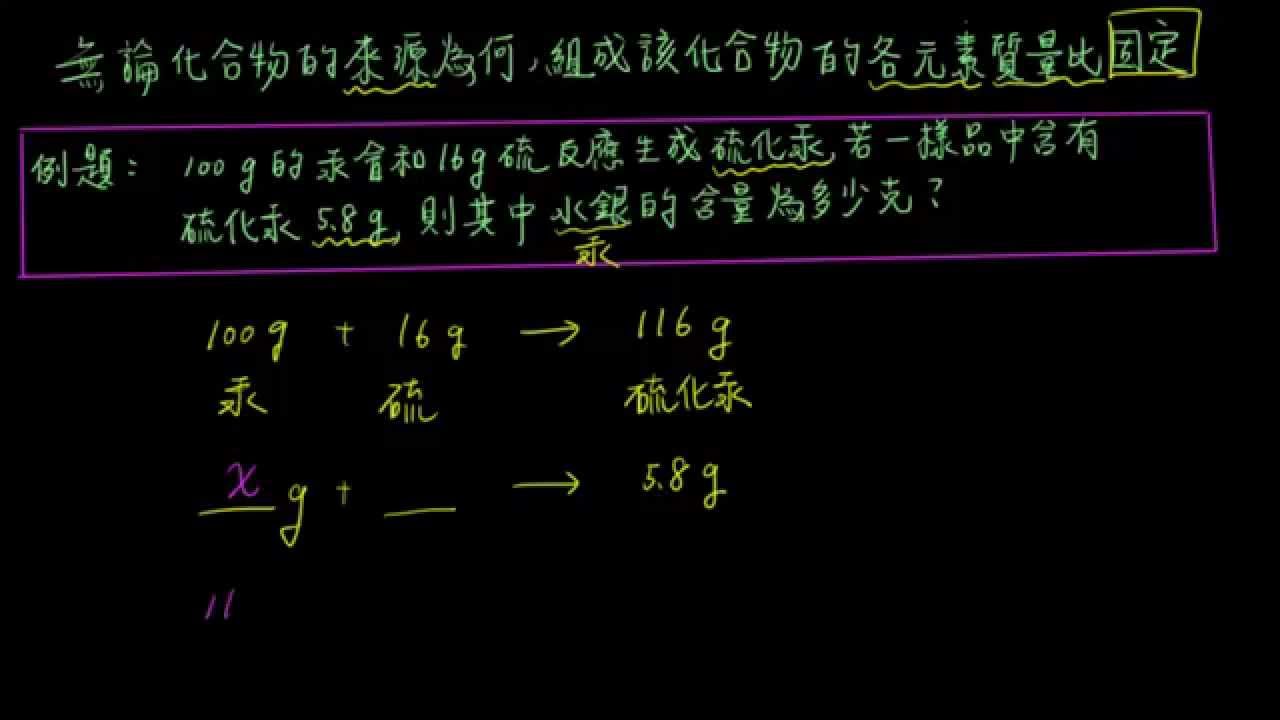 無論化合物的來源為何,組成該化合物的各元素質量比固定
例題: 100 g 的汞會和16g 硫反應生成硫化汞,若一樣品中含有
硫化汞 5.8 g, 則其中水銀的含量為多少克?
汞
100 g + 16 g → 116 g
汞 硫 硫化汞
x g + __ → 5.8 g
11